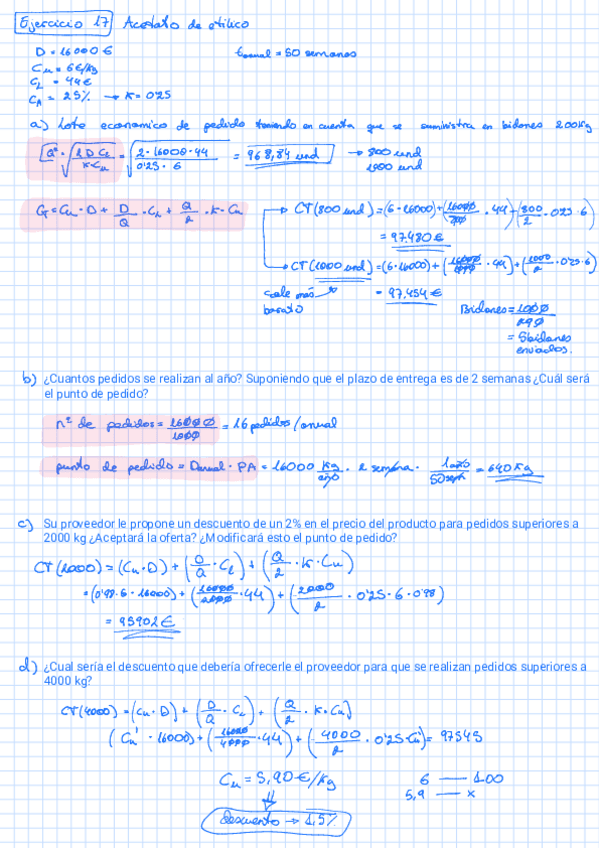 Ejercicio 17 Acetato de etilico
D = 16000 €
t anual = 50 semanas
Cu = 6€/kg
CL = 44€
CA = 25% → K = 0'25
a) Lote economico de pedido teniendo en cuenta que se suministra en bidones 200kg
Q* = √(2 D CL / K·Cu) = √(2·16000·44 / 0'25·6) = 968,84 und → 800 und
1000 und
CT = Cu · D + D/Q · CL + Q/2 · K · Cu
CT(800 und) = (6·16000) + (16000/800 · 44) + (800/2 · 0'25·6)
= 97.480€
CT(1000 und) = (6·16000) + (16000/1000 · 44) + (1000/2 · 0'25·6)
= 97.454€
Sale más barato
Bidones = 1000/200
= 5 bidones enviados.
b) ¿Cuantos pedidos se realizan al año? Suponiendo que el plazo de entrega es de 2 semanas ¿Cuál será
el punto de pedido?
nº de pedidos = 16000/1000 = 16 pedidos/anual
punto de pedido = Danual · PA = 16000 kg/año · 2 semana · 1año/50 = 640 kg
c) Su proveedor le propone un descuento de un 2% en el precio del producto para pedidos superiores a
2000 kg ¿Aceptará la oferta? ¿Modificará esto el punto de pedido?
CT(2000) = (Cu·D) + (D/Q · CL) + (Q/2 · K · Cu)
= (0'98·6·16000) + (16000/2000 · 44) + (2000/2 · 0'25·6·0'98)
= 95902€
d) ¿Cual sería el descuento que debería ofrecerle el proveedor para que se realizan pedidos superiores a
4000 kg?
CT(4000) = (Cu·D) + (D/Q · CL) + (Q/2 · K·Cu)
(Cu' · 16000) + (16000/4000 · 44) + (4000/2 · 0'25·Cu') = 97545
Cu = 5,90€/kg
6 — 100
5,9 — x
descuento → 1,5%